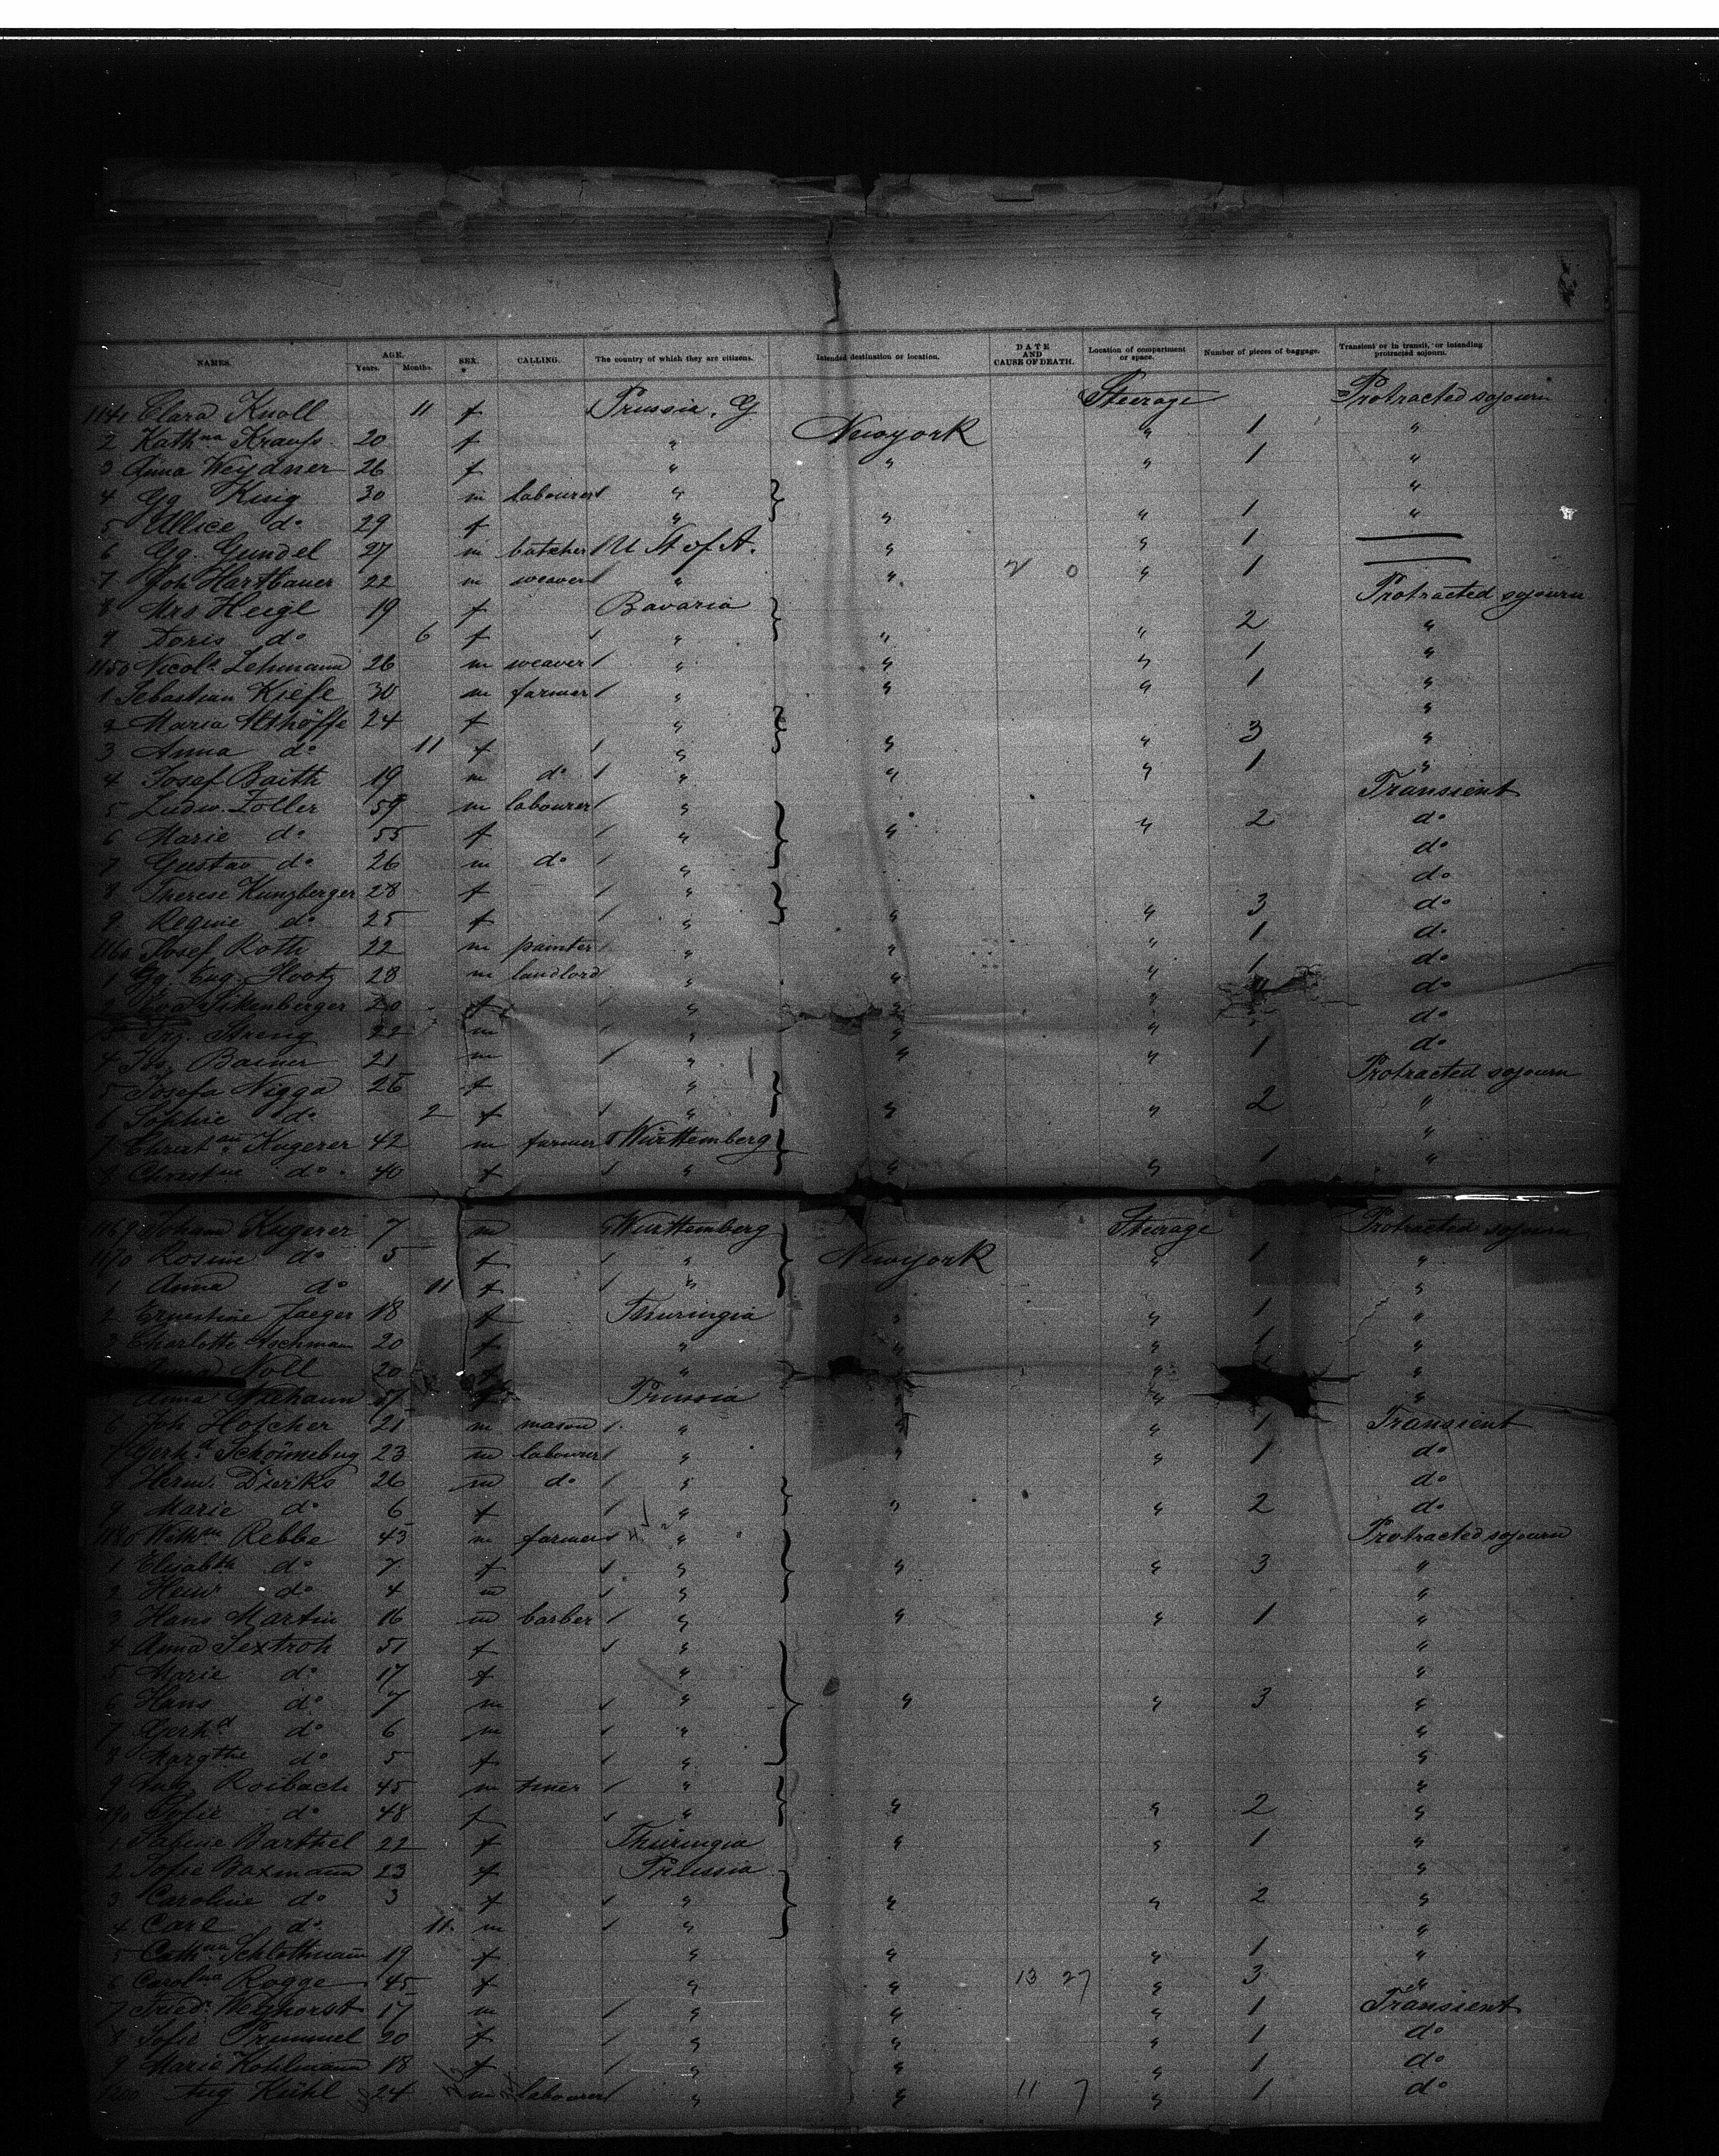 NAMES. AGE. Years. Months. SEX. CALLING. The country of which they are citizens. Intended destination or location. DATE AND CAUSE OF DEATH. Location of compartment or space. Number of pieces of baggage. Transient or in transit, or intending protracted sojourn.
1141 Clara Knoll 11 f Prussia, G Steerage Protracted sojourn
2 Kathna Krauss 20 f " Newyork " 1 "
3 Anna Weydner 26 f " " " 1 "
4 Gg King 30 m labourer " "
5 Allice do 29 f " " " 1 "
6 Gg. Gundel 27 m butcher U St of A. " " 1
7 Joh Hartbauer 22 m weaver " " " 1
8 Mrs Heigl 19 f Bavaria Protracted sojourn
9 Doris do 6 f " " " 2 "
1150 Nicols Lehmann 26 m weaver " " " 1 "
1 Sebastian Kiefe 30 m farmer " " " 1 "
2 Maria 24 f " "
3 Anna do 11 f " " " 3 "
4 Josef Baith 19 m do " " " 1 "
5 Ludw. Zoller 59 m labourer " Transient
6 Marie do 55 f " " " 2 do
7 Gustav do 26 m do " do
8 Therese Kunzberger 28 f " do
9 Regine do 25 f " " " 3 do
1160 Josef Roth 22 m painter " " " 1 do
1 Gg. Eug. Hootz 28 m landlord " " " 1 do
2 Eva 20 f " " " do
3 Frz. Streng 22 m " " " do
4 Bainer 21 m " " " 1 do
5 Josefa Nigga 26 f " Protracted sojourn
6 Sophie do 2 f " " " 2 "
7 Christan Kugerer 42 m farmer Württemberg "
8 Christne do 40 f " " " 1 "
1169 Johann Kugerer 7 m Württemberg Steerage Protracted sojourn
1170 Rosine do 5 f " Newyork " 1 "
1 Anna do 11 f " "
2 Ernestine Jaeger 18 f Thuringia " " 1 "
3 Charlotte Aschmann 20 f " " " 1 "
Anna Noll 20 f " " " "
Anna f Prussia " " "
6 Joh Hofcher 21 m mason " " " 1 Transient
7 Gerhd Schönneburg 23 m labourer " " " 1 do
8 Herm. Dierks 26 m do " do
9 Marie do 6 f " " " 2 do
1180 Wilhm Rebbe 43 m farmer " Protracted sojourn
1 Elisabth do 7 f " " " 3 "
2 Heinr do 4 m " "
3 Hans Martin 16 m barber " " " 1 "
4 Anna Sextroh 51 f " "
5 Marie do 17 f " "
6 Hans do 7 m " " " 3 "
7 Gerhd do 6 m " "
8 Margthe do 5 f " "
9 Aug. Roibach 45 m " "
1190 Sofie do 48 f " " " 2 "
1 Sabine Barthel 22 f Thuringia " " 1 "
2 Sofie Baxmann 23 f Prussia "
3 Caroline do 3 f " " " 2 "
4 Carl do 11 m " "
5 Cathna Schlothmann 19 f " " " 1 "
6 Carolna Rogge 45 f " " 13 27 " 3 "
7 Friedr Weghorst 17 m " " " 1 Transient
8 Sofie Prummel 20 f " " " 1 do
9 Marie Kohlmann 18 f " " " 1 do
1200 Aug Kühl 24 m labourer " " 11 7 " 1 do